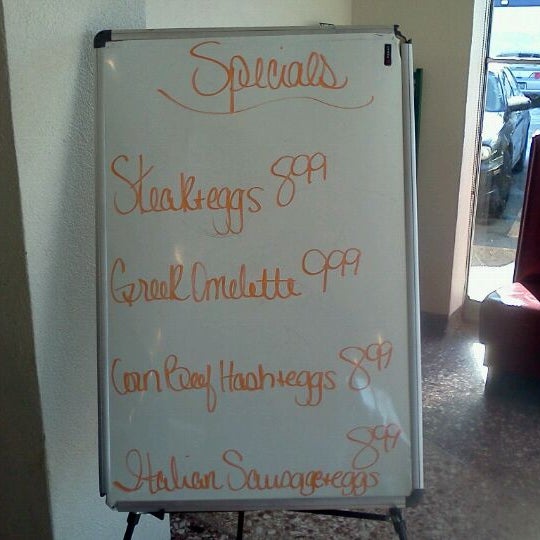 Specials
Steak+eggs 8.99
Greek Omelette 9.99
Corn Beef Hash+eggs 8.99
Italian Sausage+eggs 8.99